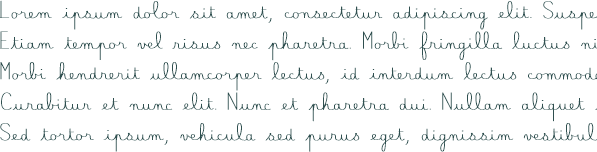 Lorem ipsum dolor sit amet, consectetur adipiscing elit. Suspe
Etiam tempor vel risus nec pharetra. Morbi fringilla luctus ni
Morbi hendrerit ullamcorper lectus, id interdum lectus commodo
Curabitur et nunc elit. Nunc et pharetra dui. Nullam aliquet
Sed tortor ipsum, vehicula sed purus eget, dignissim vestibul